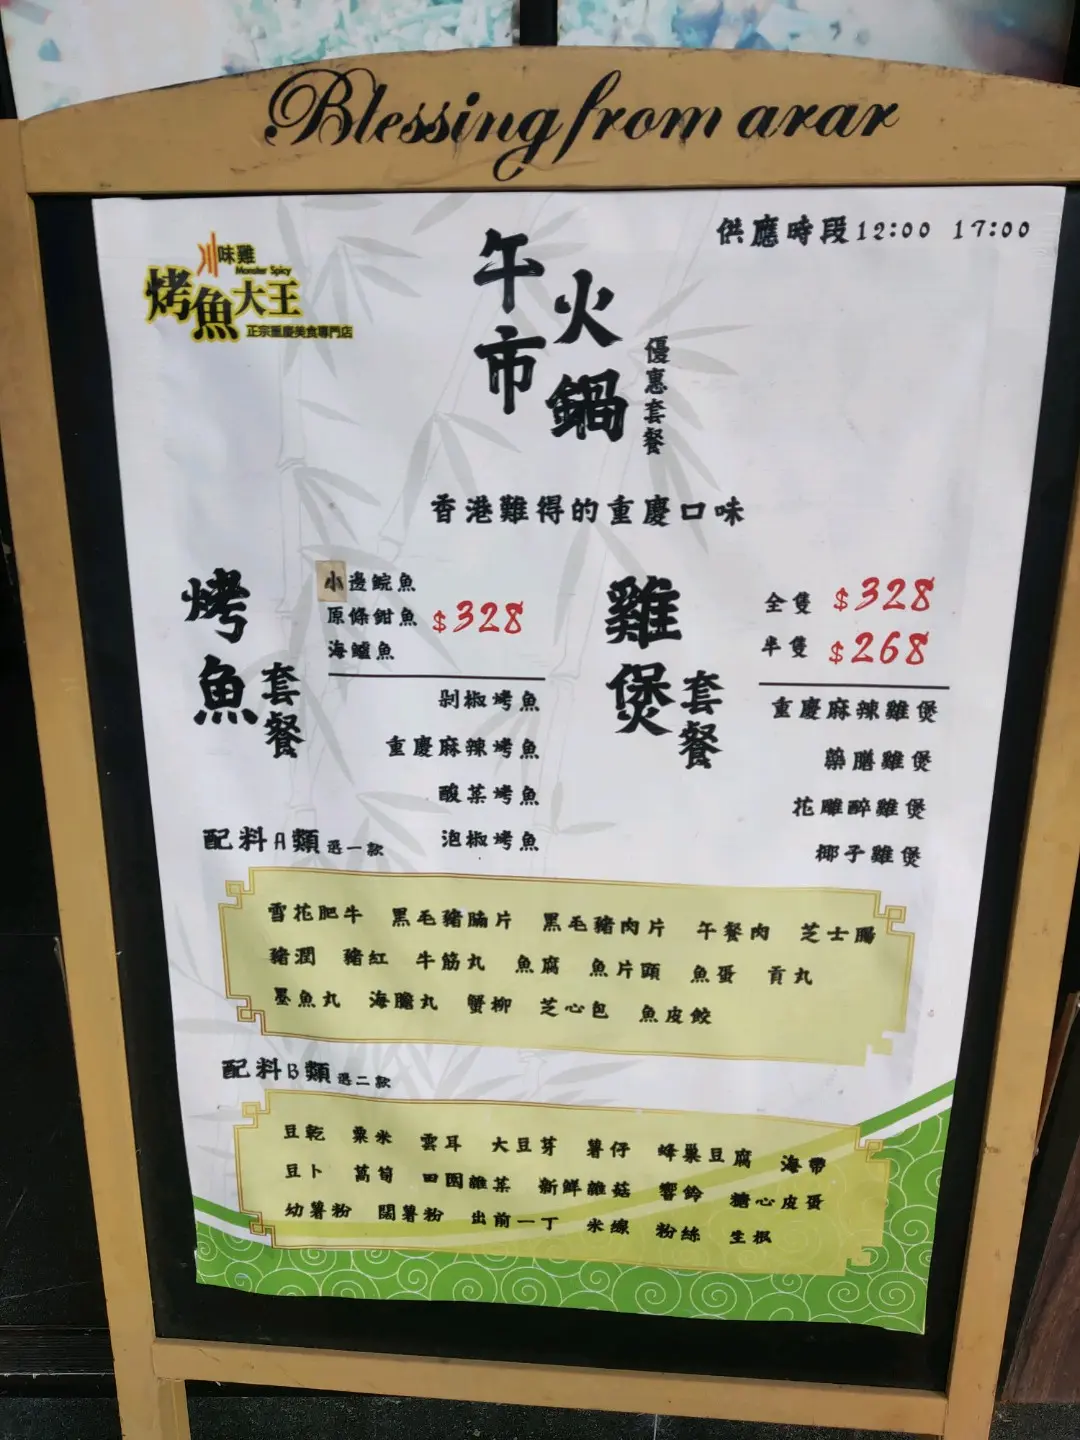 Blessing from arar
供應時段12:00 17:00
川味雞
Monster Spicy
烤魚大王
正宗重慶美食專門店
午市
火鍋
優惠套餐
香港難得的重慶口味
烤魚
套餐
小邊鯇魚
原條鉗魚
海鱸魚
$328
剁椒烤魚
重慶麻辣烤魚
酸菜烤魚
泡椒烤魚
雞煲
套餐
全隻 $328
半隻 $268
重慶麻辣雞煲
藥膳雞煲
花雕醉雞煲
椰子雞煲
配料A類 選一款
雪花肥牛 黑毛豬腩片 黑毛豬肉片 午餐肉 芝士腸
豬潤 豬紅 牛筋丸 魚腐 魚片頭 魚蛋 貢丸
墨魚丸 海膽丸 蟹柳 芝心包 魚皮餃
配料B類 選二款
豆乾 粟米 雲耳 大豆芽 薯仔 蜂巢豆腐 海帶
豆卜 萵筍 田園雜菜 新鮮雜菇 響鈴 糖心皮蛋
幼薯粉 闊薯粉 出前一丁 米線 粉絲 生根